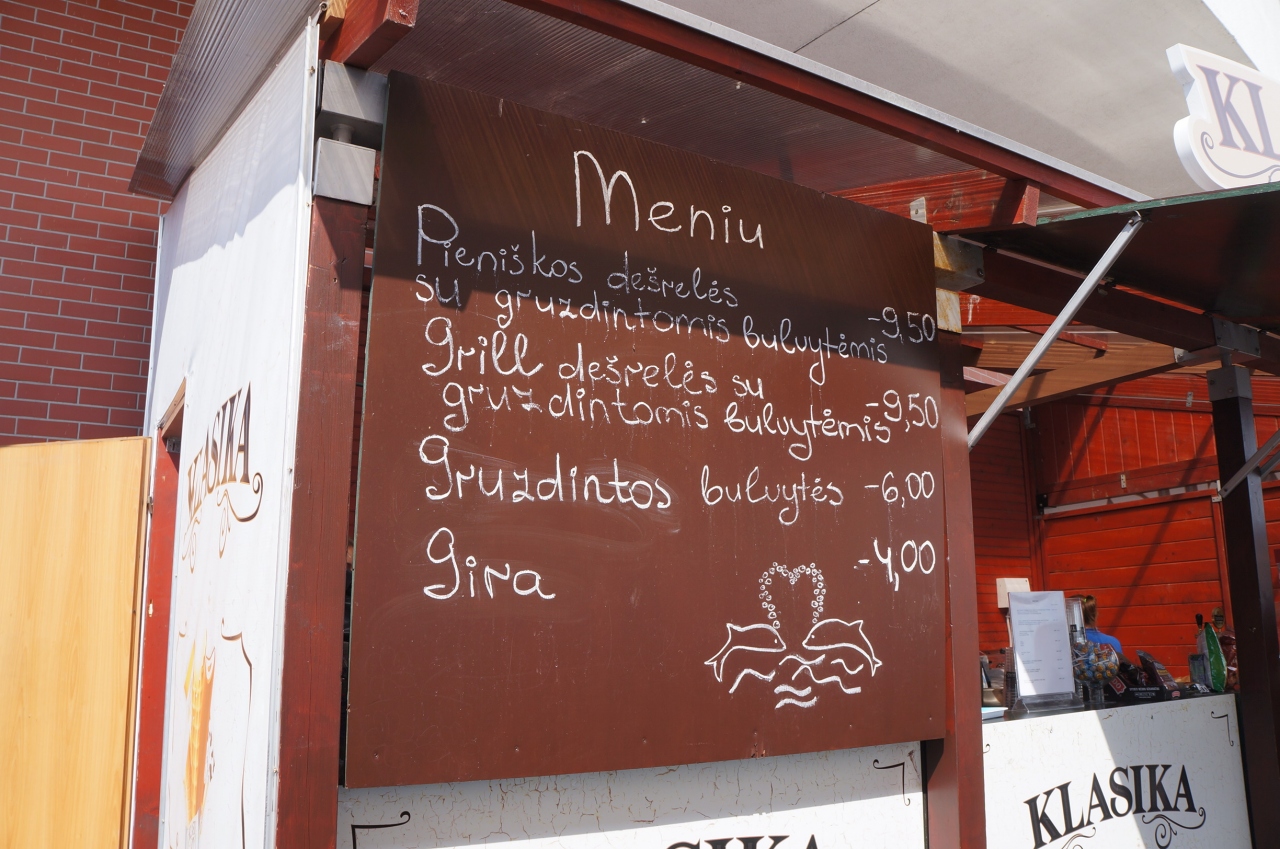 Meniu
Pieniškos dešrelės
su gruzdintomis bulvytėmis -9,50
Grill dešrelės su
gruzdintomis bulvytėmis -9,50
Gruzdintos bulvytės -6,00
Gira -4,00
KLASIKA
KLASIKA